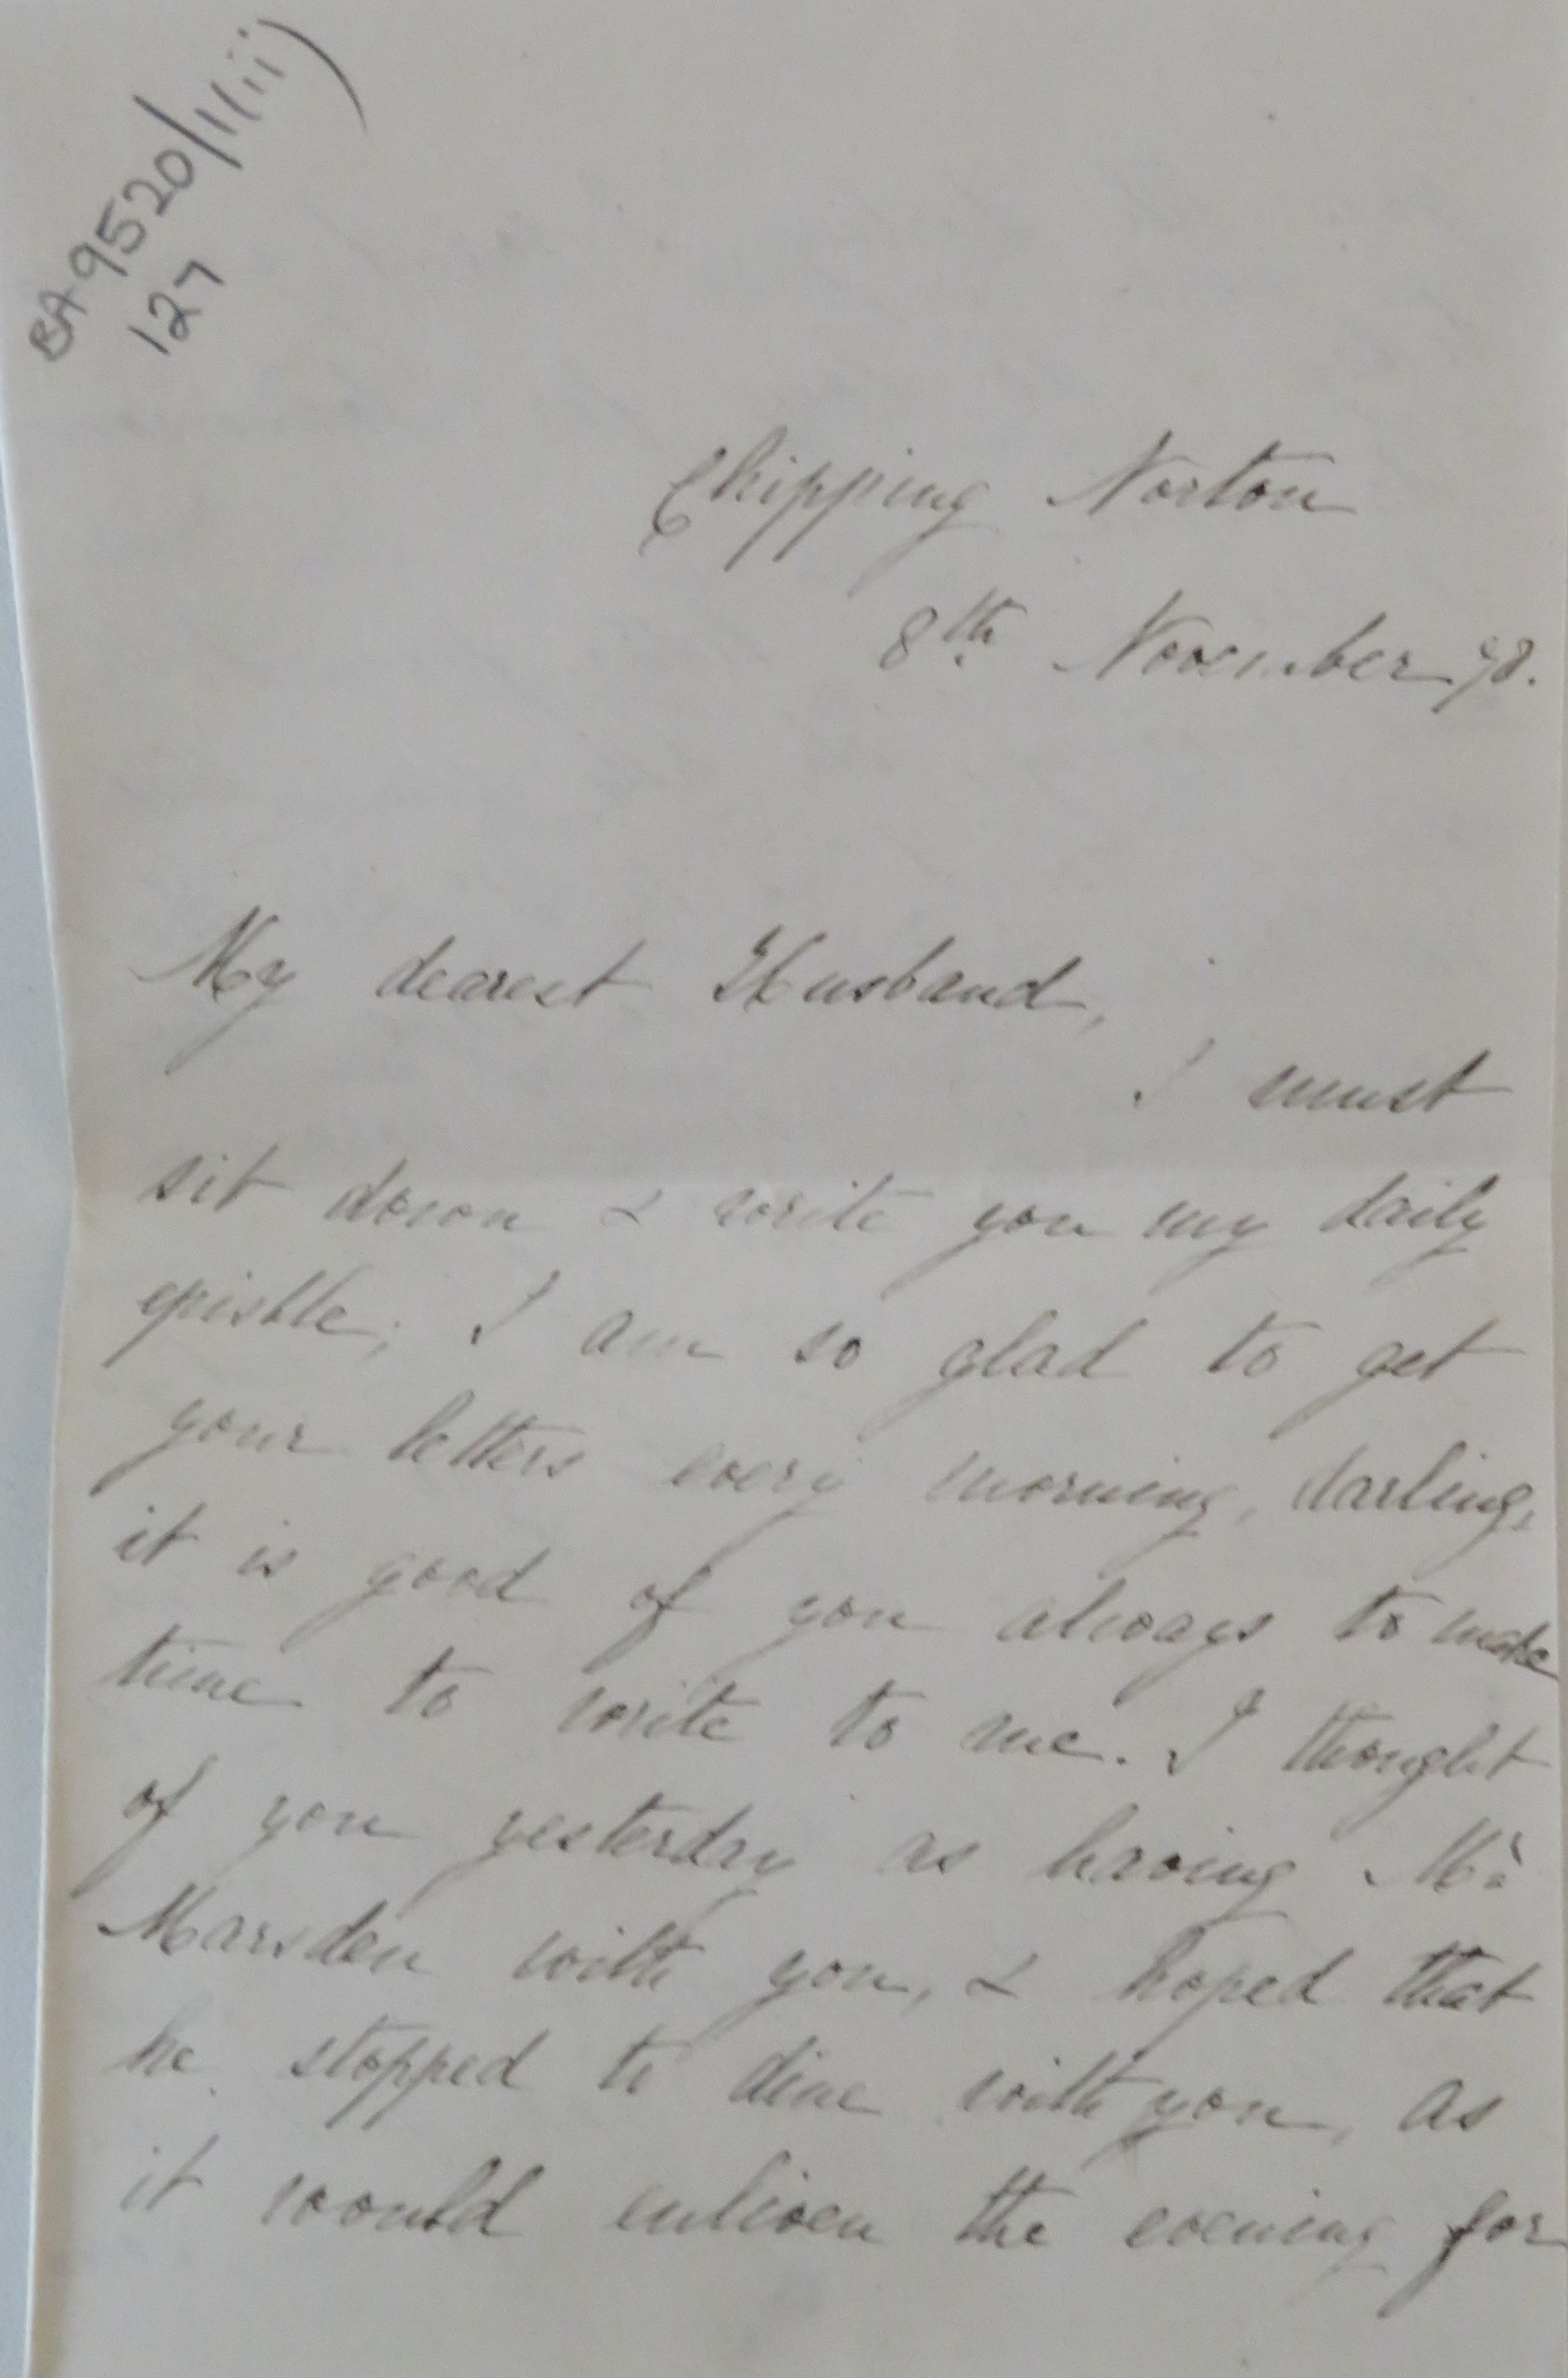 BA 9520/1(ii)
127
Chipping Norton
8th November 98.
My dearest Husband,
I must
sit down & write you my daily
epistle; I am so glad to get
your letters every morning, darling,
it is good of you always to make
time to write to me. I thought
of you yesterday as having Mr
Marsden with you, & hoped that
he stopped to dine with you, as
it would enliven the evening for